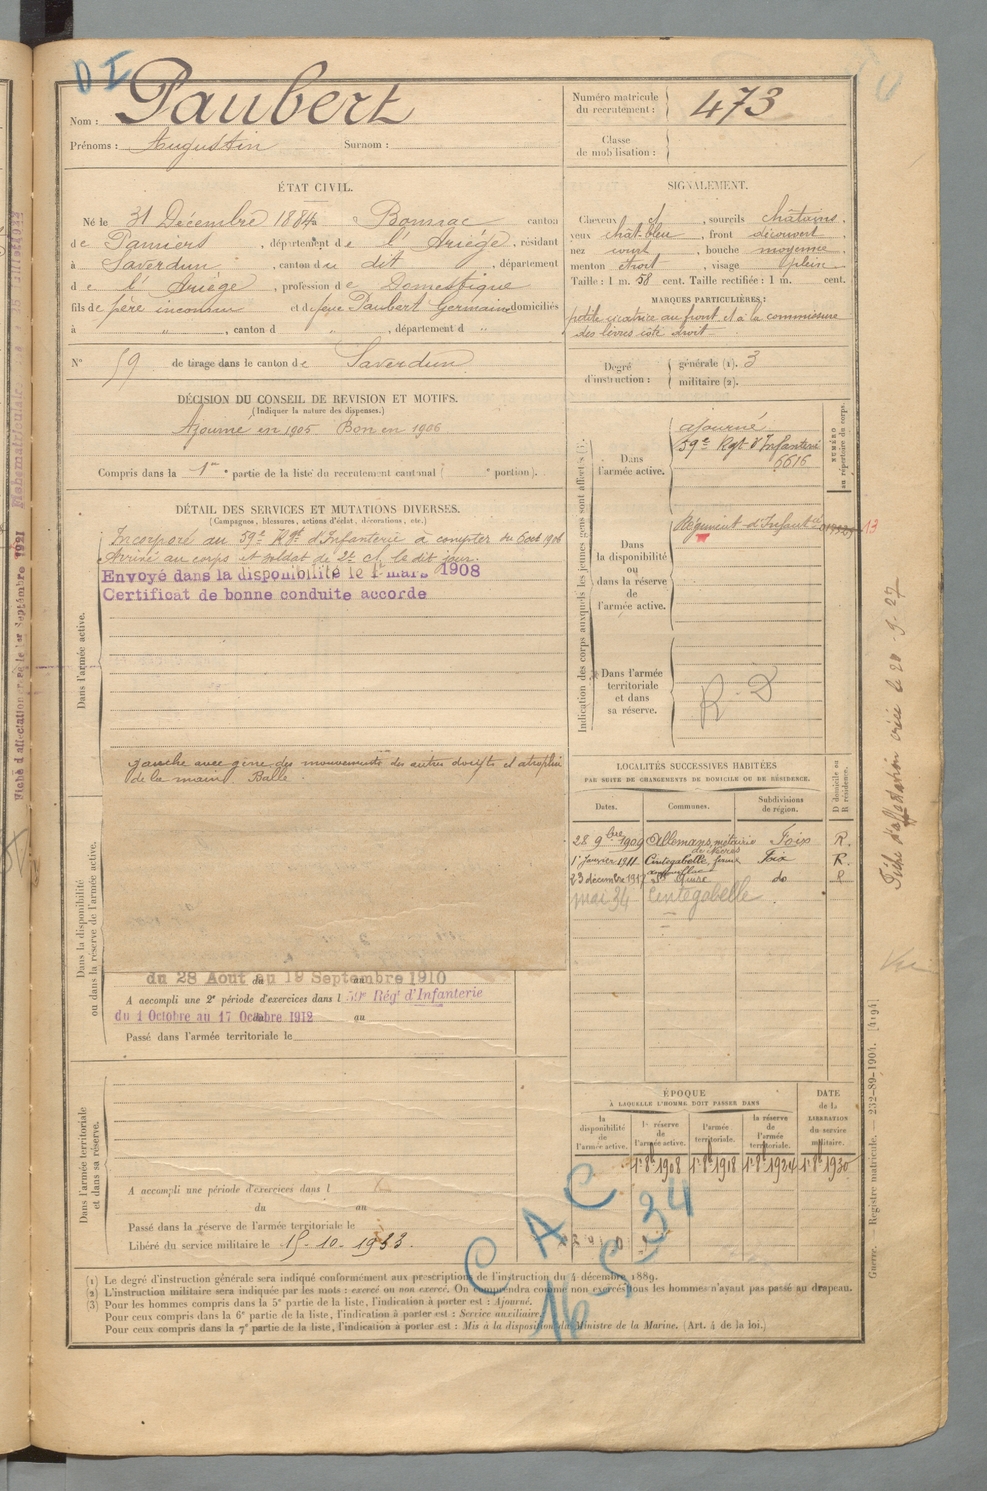 DI
Nom : Paubert
Prénoms : Augustin Surnom :
Numéro matricule du recrutement : 473
Classe de mobilisation :
ÉTAT CIVIL.
Né le 31 Décembre 1884, à Bonnac canton
de Pamiers, département de l'Ariége, résidant
à Saverdun, canton du dit, département
de l'Ariége, profession de Domestique
fils de père inconnu et de Paubert Germaine domiciliés
à " , canton d " , département d "
N° 59 de tirage dans le canton de Saverdun
SIGNALEMENT.
Cheveux, sourcils châtains,
yeux chât-bleu, front découvert,
nez court, bouche moyenne,
menton étroit, visage plein
Taille : 1 m. 58 cent. Taille rectifiée : 1 m. cent.
MARQUES PARTICULIÈRES :
petite cicatrice au front et à la commissure
des lèvres côté droit
Degré d'instruction :
générale (1). 3
militaire (2).
DÉCISION DU CONSEIL DE REVISION ET MOTIFS.
(Indiquer la nature des dispenses.)
Ajourné en 1905 Bon en 1906
Compris dans la 1re partie de la liste du recrutement cantonal ( e portion).
DÉTAIL DES SERVICES ET MUTATIONS DIVERSES.
(Campagnes, blessures, actions d'éclat, décorations, etc.)
Dans l'armée active.
Incorporé au 59e Rgt d'Infanterie à compter du 6 oct 1906
Arrivé au corps et soldat de 2e cl. le dit jour.
Envoyé dans la disponibilité le 1er mars 1908
Certificat de bonne conduite accordé
gauche avec gêne des mouvements des autres doigts et atrophie
de la main Balle.
Dans la disponibilité ou dans la réserve de l'armée active.
du 28 Aout au 19 Septembre 1910
A accompli une 2e période d'exercices dans l 59e Régt d'Infanterie
du 1 Octobre au 17 Octobre 1912 au
Passé dans l'armée territoriale le
Dans l'armée territoriale et dans sa réserve.
A accompli une période d'exercices dans l
du au
Passé dans la réserve de l'armée territoriale le
Libéré du service militaire le 15-10-1933.
Indication des corps auxquels les jeunes gens sont affectés (3).
NUMÉRO au répertoire du corps.
Dans l'armée active.
ajourné
59e Rgt d'Infanterie
6616
Dans la disponibilité ou dans la réserve de l'armée active.
Régiment d'Infanterie
13
Dans l'armée territoriale et dans sa réserve.
R. D
LOCALITÉS SUCCESSIVES HABITÉES
PAR SUITE DE CHANGEMENTS DE DOMICILE OU DE RÉSIDENCE.
Dates. Communes. Subdivisions de région. D domicile ou R résidence.
28 9bre 1909 Allemans, métairie Foix R.
1er Janvier 1911 Cintegabelle, Foix R.
23 décembre 1917 do R
mai 34 Cintegabelle
ÉPOQUE
À LAQUELLE L'HOMME DOIT PASSER DANS
la disponibilité de l'armée active.
la réserve de l'armée active.
l'armée territoriale.
la réserve de l'armée territoriale.
DATE de la LIBÉRATION du service militaire.
1er 8bre 1908 1er 8bre 1918 1er 8bre 1924 1er 8bre 1930
C A C
16-5-34
(1) Le degré d'instruction générale sera indiqué conformément aux prescriptions de l'instruction du 4 décembre 1889.
(2) L'instruction militaire sera indiquée par les mots : exercé ou non exercé. On comprendra comme non exercés tous les hommes n'ayant pas passé au drapeau.
(3) Pour les hommes compris dans la 5e partie de la liste, l'indication à porter est : Ajourné.
Pour ceux compris dans la 6e partie de la liste, l'indication à porter est : Service auxiliaire.
Pour ceux compris dans la 7e partie de la liste, l'indication à porter est : Mis à la disposition du Ministre de la Marine. (Art. 4 de la loi.)
Fiche d'affectation créée le 20-9-27
Guerre. — Registre matricule. — 232-89-1904. [4194]